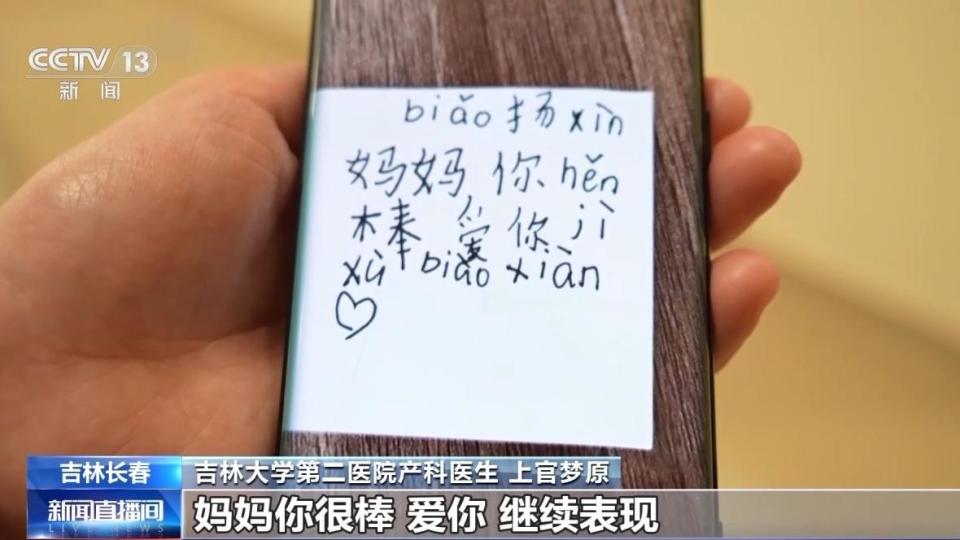 CCTV 13
新闻
biǎo扬xìn
妈妈 你hěn
棒 爱你jì
xù biǎo xiàn
吉林长春
吉林大学第二医院产科医生 上官梦原
新闻直播间
LIVE NEWS
妈妈你很棒 爱你 继续表现